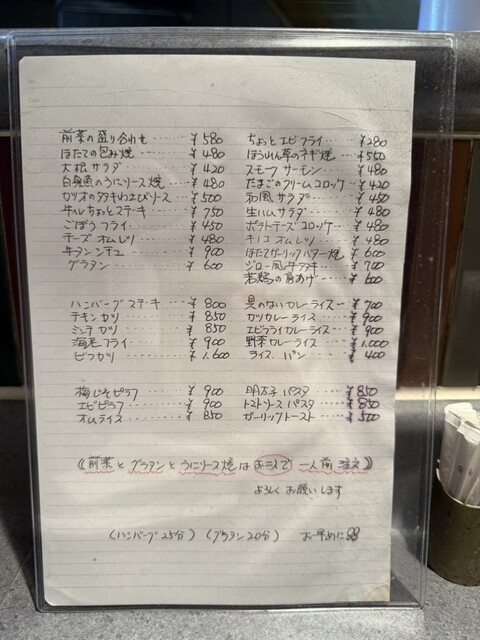 前菜の盛り合わせ ¥580
ほたての包み焼 ¥480
大根サラダ ¥420
白身魚のうにソース焼 ¥480
カツオのタタキわさびソース ¥500
牛ヒレちょっとステーキ ¥750
ごぼうフライ ¥450
チーズオムレツ ¥480
牛タンシチュー ¥900
グラタン ¥600
ちょっとエビフライ ¥280
ほうれん草のネギ焼 ¥550
スモークサーモン ¥480
たまごのクリームコロッケ ¥420
和風サラダ ¥450
生ハムサラダ ¥480
ポテトチーズコロッケ ¥480
キノコオムレツ ¥480
ほたてガーリックバター焼 ¥600
ジロー風牛タタキ ¥700
若鶏の唐あげ ¥600
ハンバーグステーキ ¥800
チキンカツ ¥850
ミンチカツ ¥850
海老フライ ¥900
ビフカツ ¥1,600
具のないカレーライス ¥700
カツカレーライス ¥900
エビフライカレーライス ¥900
野菜カレーライス ¥1,000
ライス、パン ¥400
梅じそピラフ ¥900
エビピラフ ¥900
オムライス ¥850
明太子パスタ ¥850
トマトソースパスタ ¥850
ガーリックトースト ¥500
《前菜とグラタンとうにソース焼はお二人で一人前注文》
よろしくお願いします
(ハンバーグ25分) (グラタン20分) お早めに